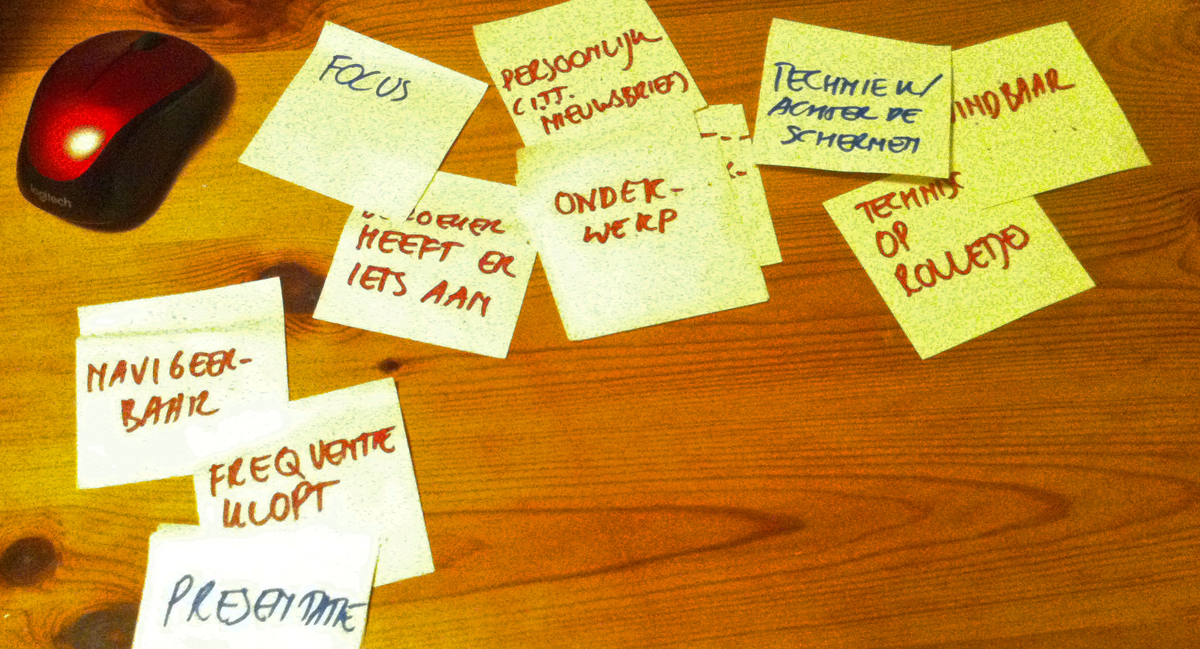 logitech
FOCUS
PERSOONLIJK
(I.T.T.
NIEUWSBRIEF)
TECHNIEK/
ACHTER DE
SCHERMEN
INDBAAR
HEEFT ER
IETS AAN
ONDER-
WERP
TECHNISC
OP
ROLLETJE
NAVIGEER-
BAAR
FREQUENTIE
KLOPT
PRESENTATIE